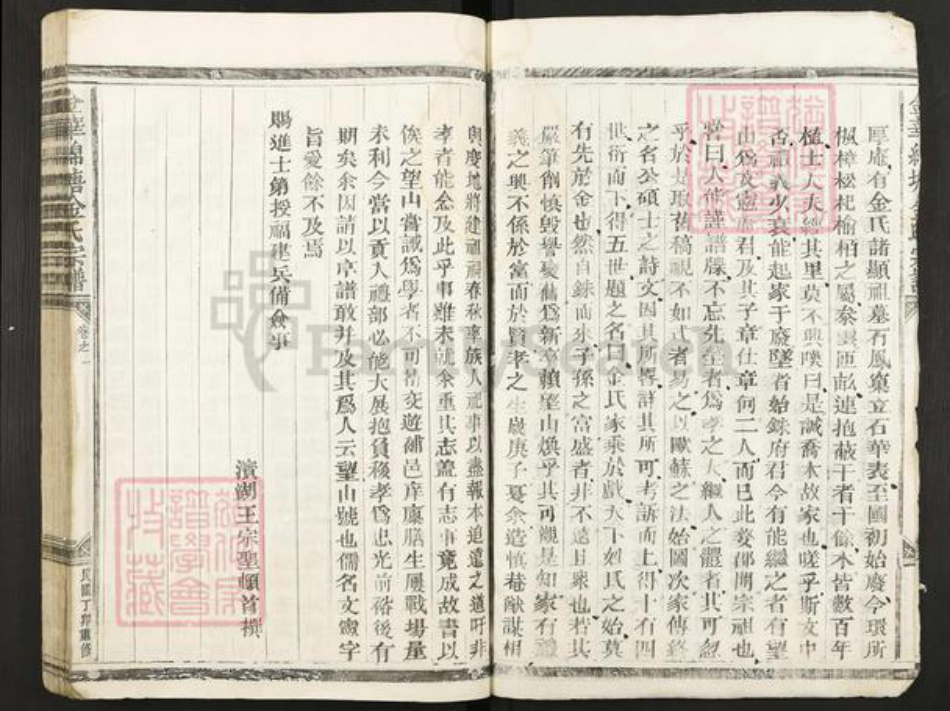 厚庵有金氏諸顯祖墓石鳳窠立石華表至國初始廢今環所
楓樟松杞榆柏之屬參雲匝畝連抱蔽干者千餘木皆數百年
植士大夫經其里莫不興嘆曰是誠喬木故家也嗟乎斯文中
否禮義少衰能起家于廢墜者始錸府君今有能繼之者有望
山爲及憲 君及其子章仕章何二人而已此婺郡開宗祖也
嘗曰人能謹譜牒不忘先 者爲孝之大繼人之體者其可忽
乎於是取舊稿視不如式者易之以歐蘇之法始圖次家傳終
之名公碩士之詩文因其所畧詳其所可考訴而上得十有四
世衍而下得五世題之名曰金氏家乘於戲天下姓氏之始莫
有先於金也然自錸而來子孫之富盛者幷不遠且衆也若其
嚴筆削慎毀譽變舊爲新卒賴望山煥乎其可觀是知家有禮
義之興不係於富而於賢孝之生歲庚子夏余造慎巷猷謀相
興度地將建祖祠春秋率族人祀事以盡報本追遠之道吁非
孝者能念及此乎事雖未就余重其志蓋有志事竟成故書以
俟之望山嘗誡爲學者不可 交遊補邑庠廩膳生屢戰場量
未利今當以貢入禮部必能大展抱負移孝爲忠光前裕後有
期矣余因請以序譜敢并及其爲人云望山號也儒名文憲字
旨愛餘不及焉
賜進士第授福建兵備僉事
濱湖王宗聖頓首撰
金華錦塘金氏宗譜
卷之一
民國丁卯重修
FamilySearch